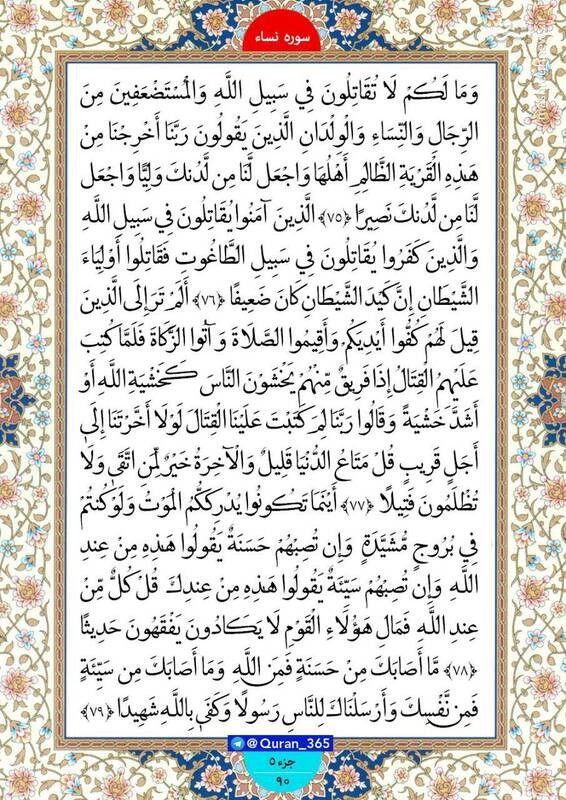 سوره نساء
وَمَا لَكُمْ لَا تُقَاتِلُونَ فِي سَبِيلِ اللَّهِ وَالْمُسْتَضْعَفِينَ مِنَ
الرِّجَالِ وَالنِّسَاءِ وَالْوِلْدَانِ الَّذِينَ يَقُولُونَ رَبَّنَا أَخْرِجْنَا مِنْ
هَذِهِ الْقَرْيَةِ الظَّالِمِ أَهْلُهَا وَاجْعَل لَّنَا مِن لَّدُنكَ وَلِيًّا وَاجْعَل
لَّنَا مِن لَّدُنكَ نَصِيرًا ﴿۷۵﴾ الَّذِينَ آمَنُوا يُقَاتِلُونَ فِي سَبِيلِ اللَّهِ
وَالَّذِينَ كَفَرُوا يُقَاتِلُونَ فِي سَبِيلِ الطَّاغُوتِ فَقَاتِلُوا أَوْلِيَاءَ
الشَّيْطَانِ إِنَّ كَيْدَ الشَّيْطَانِ كَانَ ضَعِيفًا ﴿۷۶﴾ أَلَمْ تَرَ إِلَى الَّذِينَ
قِيلَ لَهُمْ كُفُّوا أَيْدِيَكُمْ وَأَقِيمُوا الصَّلَاةَ وَآتُوا الزَّكَاةَ فَلَمَّا كُتِبَ
عَلَيْهِمُ الْقِتَالُ إِذَا فَرِيقٌ مِّنْهُمْ يَخْشَوْنَ النَّاسَ كَخَشْيَةِ اللَّهِ أَوْ
أَشَدَّ خَشْيَةً وَقَالُوا رَبَّنَا لِمَ كَتَبْتَ عَلَيْنَا الْقِتَالَ لَوْلَا أَخَّرْتَنَا إِلَى
أَجَلٍ قَرِيبٍ قُلْ مَتَاعُ الدُّنْيَا قَلِيلٌ وَالْآخِرَةُ خَيْرٌ لِّمَنِ اتَّقَى وَلَا
تُظْلَمُونَ فَتِيلًا ﴿۷۷﴾ أَيْنَمَا تَكُونُوا يُدْرِككُّمُ الْمَوْتُ وَلَوْ كُنتُمْ
فِي بُرُوجٍ مُّشَيَّدَةٍ وَإِن تُصِبْهُمْ حَسَنَةٌ يَقُولُوا هَذِهِ مِنْ عِندِ
اللَّهِ وَإِن تُصِبْهُمْ سَيِّئَةٌ يَقُولُوا هَذِهِ مِنْ عِندِكَ قُلْ كُلٌّ مِّنْ
عِندِ اللَّهِ فَمَالِ هَؤُلَاءِ الْقَوْمِ لَا يَكَادُونَ يَفْقَهُونَ حَدِيثًا
﴿۷۸﴾ مَّا أَصَابَكَ مِنْ حَسَنَةٍ فَمِنَ اللَّهِ وَمَا أَصَابَكَ مِن سَيِّئَةٍ
فَمِن نَّفْسِكَ وَأَرْسَلْنَاكَ لِلنَّاسِ رَسُولًا وَكَفَى بِاللَّهِ شَهِيدًا ﴿۷۹﴾
@Quran_365
جزء ۵
۹۰